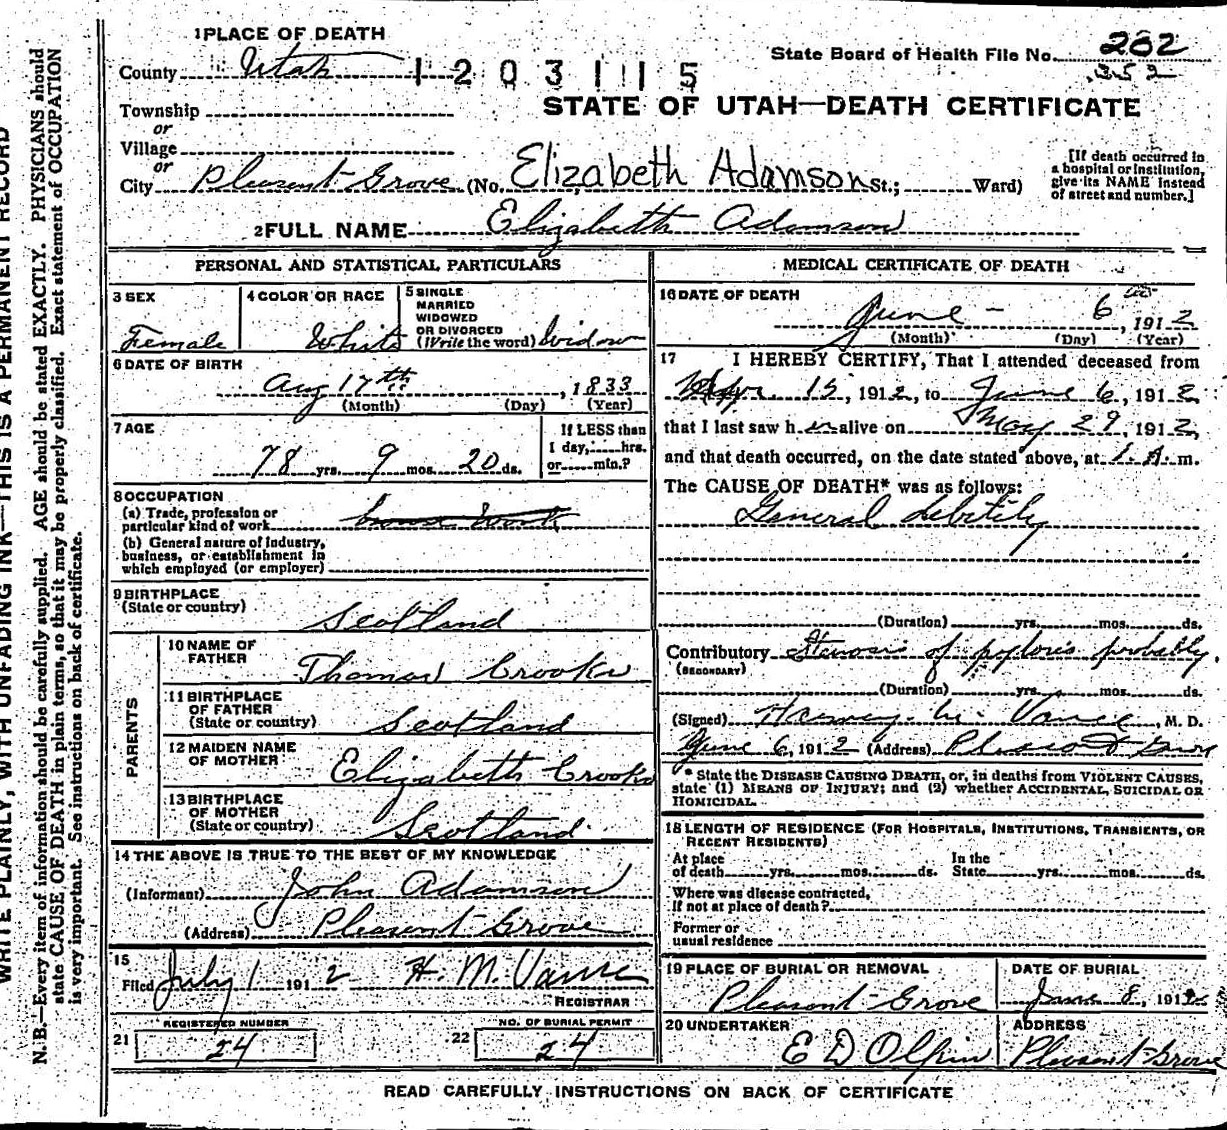 WRITE PLAINLY, WITH UNFADING INK—THIS IS A PERMANENT RECORD
N. B.—Every item of information should be carefully supplied. AGE should be stated EXACTLY. PHYSICIANS should
state CAUSE OF DEATH in plain terms, so that it may be properly classified. Exact statement of OCCUPATION
is very important. See instructions on back of certificate.
1 PLACE OF DEATH
County Utah
1203115
State Board of Health File No. 202
352
STATE OF UTAH—DEATH CERTIFICATE
Township
or
Village
or
City Pleasant Grove (No. Elizabeth Adamson St.; Ward)
[If death occurred in
a hospital or institution,
give its NAME instead
of street and number.]
2 FULL NAME Elizabeth Adamson
PERSONAL AND STATISTICAL PARTICULARS
3 SEX
Female
4 COLOR OR RACE
White
5 SINGLE
MARRIED
WIDOWED
OR DIVORCED
(Write the word) Widow
6 DATE OF BIRTH
Aug 17th, 1833
(Month) (Day) (Year)
7 AGE
78 yrs. 9 mos. 20 ds.
If LESS than
1 day, hrs.
or min.?
8 OCCUPATION
(a) Trade, profession or
particular kind of work House Work
(b) General nature of industry,
business, or establishment in
which employed (or employer)
9 BIRTHPLACE
(State or country)
Scotland
PARENTS
10 NAME OF
FATHER
Thomas Crooks
11 BIRTHPLACE
OF FATHER
(State or country)
Scotland
12 MAIDEN NAME
OF MOTHER
Elizabeth Crooks
13 BIRTHPLACE
OF MOTHER
(State or country)
Scotland
14 THE ABOVE IS TRUE TO THE BEST OF MY KNOWLEDGE
(Informant) John Adamson
(Address) Pleasant Grove
15
Filed July 1 1912 H. M. Vance
REGISTRAR
21 REGISTERED NUMBER
24
22 NO. OF BURIAL PERMIT
24
MEDICAL CERTIFICATE OF DEATH
16 DATE OF DEATH
June - 6, 1912
(Month) (Day) (Year)
17 I HEREBY CERTIFY, That I attended deceased from
Apr. 15, 1912, to June 6, 1912
that I last saw her alive on May 29, 1912,
and that death occurred, on the date stated above, at 1. A. m.
The CAUSE OF DEATH* was as follows:
General debitily
(Duration) yrs. mos. ds.
Contributory Stenosis of pyloris probably.
(SECONDARY)
(Duration) yrs. mos. ds.
(Signed) Harvey M. Vance, M. D.
June 6, 1912 (Address) Pleasant Grove
* State the DISEASE CAUSING DEATH, or, in deaths from VIOLENT CAUSES,
state (1) MEANS OF INJURY; and (2) whether ACCIDENTAL, SUICIDAL OR
HOMICIDAL.
18 LENGTH OF RESIDENCE (FOR HOSPITALS, INSTITUTIONS, TRANSIENTS, OR
RECENT RESIDENTS)
At place
of death yrs. mos. ds.
In the
State yrs. mos. ds.
Where was disease contracted,
If not at place of death?
Former or
usual residence
19 PLACE OF BURIAL OR REMOVAL
Pleasant Grove
DATE OF BURIAL
June 8, 1912
20 UNDERTAKER
E D Olpin
ADDRESS
Pleasant Grove
READ CAREFULLY INSTRUCTIONS ON BACK OF CERTIFICATE